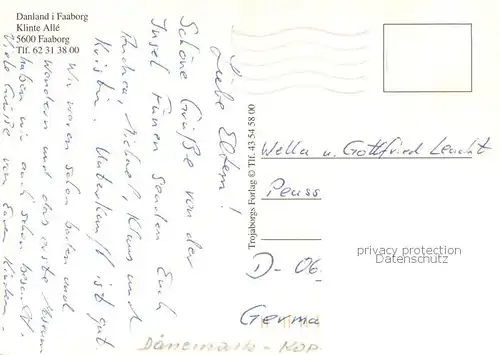 Danland i Faaborg
Klinte Allé
5600 Faaborg
Tlf. 62 31 38 00
Liebe Eltern!
Schöne Grüße von der
Insel Fünen senden Euch
Andrea, Michael, Klaus und
Kristin. Unterkunft ist gut.
Wir waren schon baden und
wandern und das erste Museum
haben wir auch schon besucht.
Viele Grüße von Euren Kindern.
Trojaborgs Forlag © Tlf. 43 54 58 00
Wella u. Gottfried Leucht
Peuss
D-06
Germa
privacy protection
Datenschutz
Dänemark - KOP